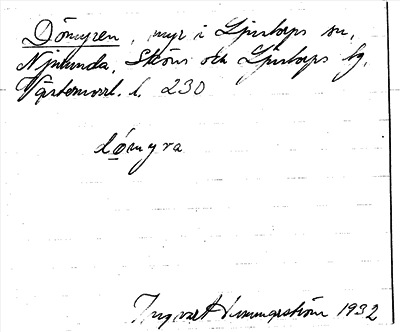 Dömyren, myr i Ljustorps sn,
Njurunda, Sköns och Ljustorps tg,
Västernorrl. l. 230
dömyra
Ingvar Hammarström 1932